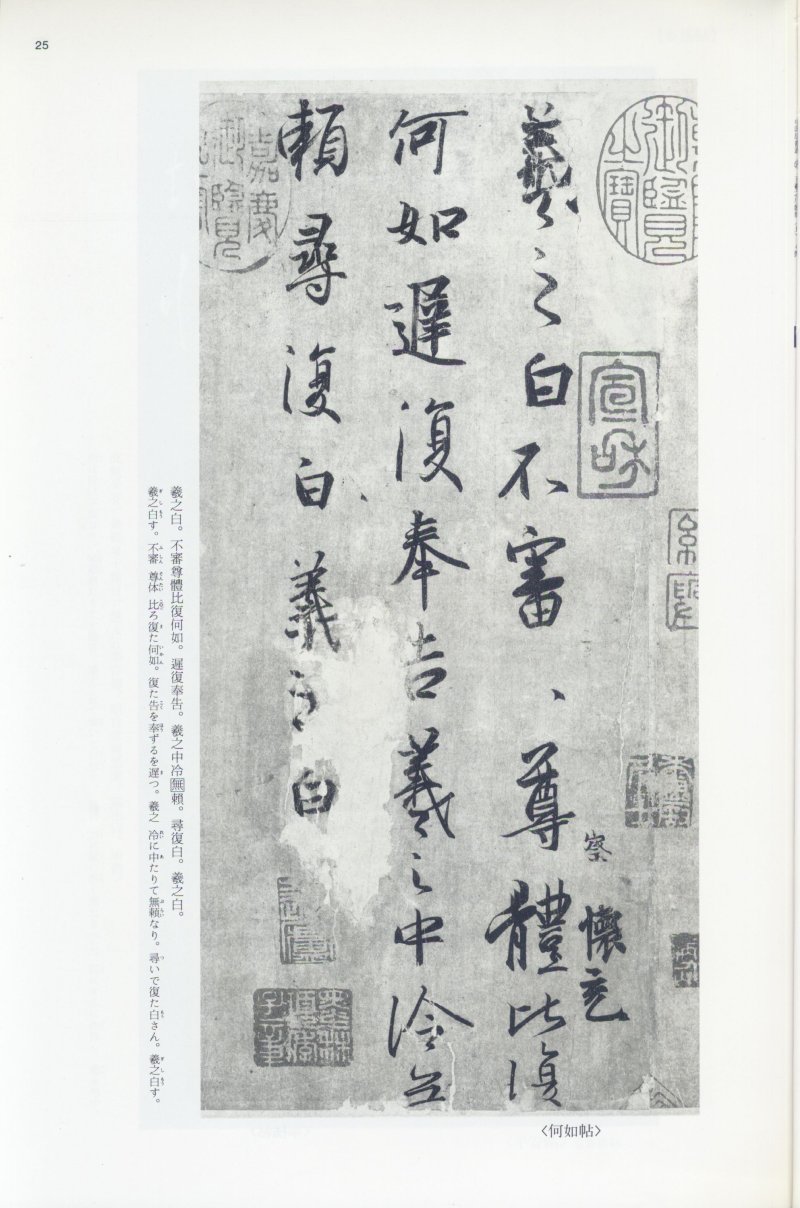 25
羲之白不審、尊體比復
察
懷充
何如遲復奉告羲之中冷無
賴尋復白羲之白
御覽
之寶
宣和
嘉慶
御覽
〈何如帖〉
羲之白。不審尊體比復何如。遲復奉告。羲之中冷無賴。尋復白。羲之白。
羲之白す。不審 尊体 比ろ復た何如。復た告を奉ずるを遲つ。羲之 冷に中たりて無頼なり。尋いで復た白さん。羲之白す。